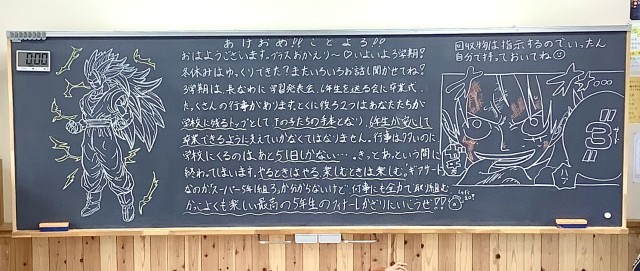 0:00
あけおめ!!ことよろ!!
おはようございます。プラスおかえり〜♡いよいよ3学期!
冬休みはゆっくりできた?またいろいろお話し聞かせてね?
3学期は、長なわに学習発表会、6年生を送る会に卒業式、
たくさんの行事があります。とくに後ろ2つはあなたたちが
学校に残るトップとして下の子たちの手本となり、6年生が安心して
卒業できるように支えていかなくてはなりません。行事は多いのに
学校にくるのは、あと51日しかない…。きっとあっという間に
終わってしまいます。やるときはやる。楽しむときは楽しむ。ギア
なのか、スーパー5年1組3、か分からないけど 何事にも全力で取り組む、
かっこよくも楽しい最高の5年生のフィナーレかざりにいこうぜ!!
回収物は指示するのでいったん
自分で持っておいてね
"3"
ハァ